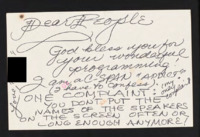 Dear People
God bless you for
your wonderful
programming!
I am a C-SPAN "ADDICT"
(I have to confess)
ONE COMPLAINT:
YOU DON'T PUT THE
NAMES OF THE SPEAKERS
ON THE SCREEN OFTEN OR
LONG ENOUGH ANYMORE!